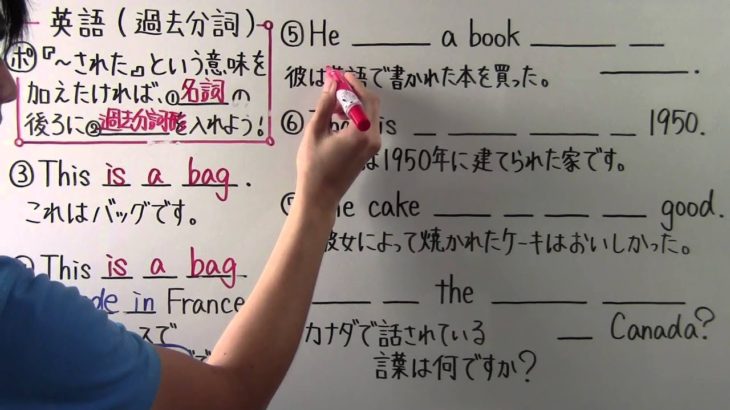 英語(過去分詞)
ポ『~された』という意味を
加えたければ、①名詞の
後ろに②過去分詞形を入れよう!
③ This is a bag.
これはバッグです。
This is a bag
in France
スで
⑤ He ____ a book ____ __
____.
彼は 語で書かれた本を買った。
⑥ is __ ____ ____ __ 1950.
は1950年に建てられた家です。
cake ____ ____ __ ____ good.
彼女によって焼かれたケーキはおいしかった。
____ __ the ____ ____
__ Canada?
カナダで話されている
言葉は何ですか?